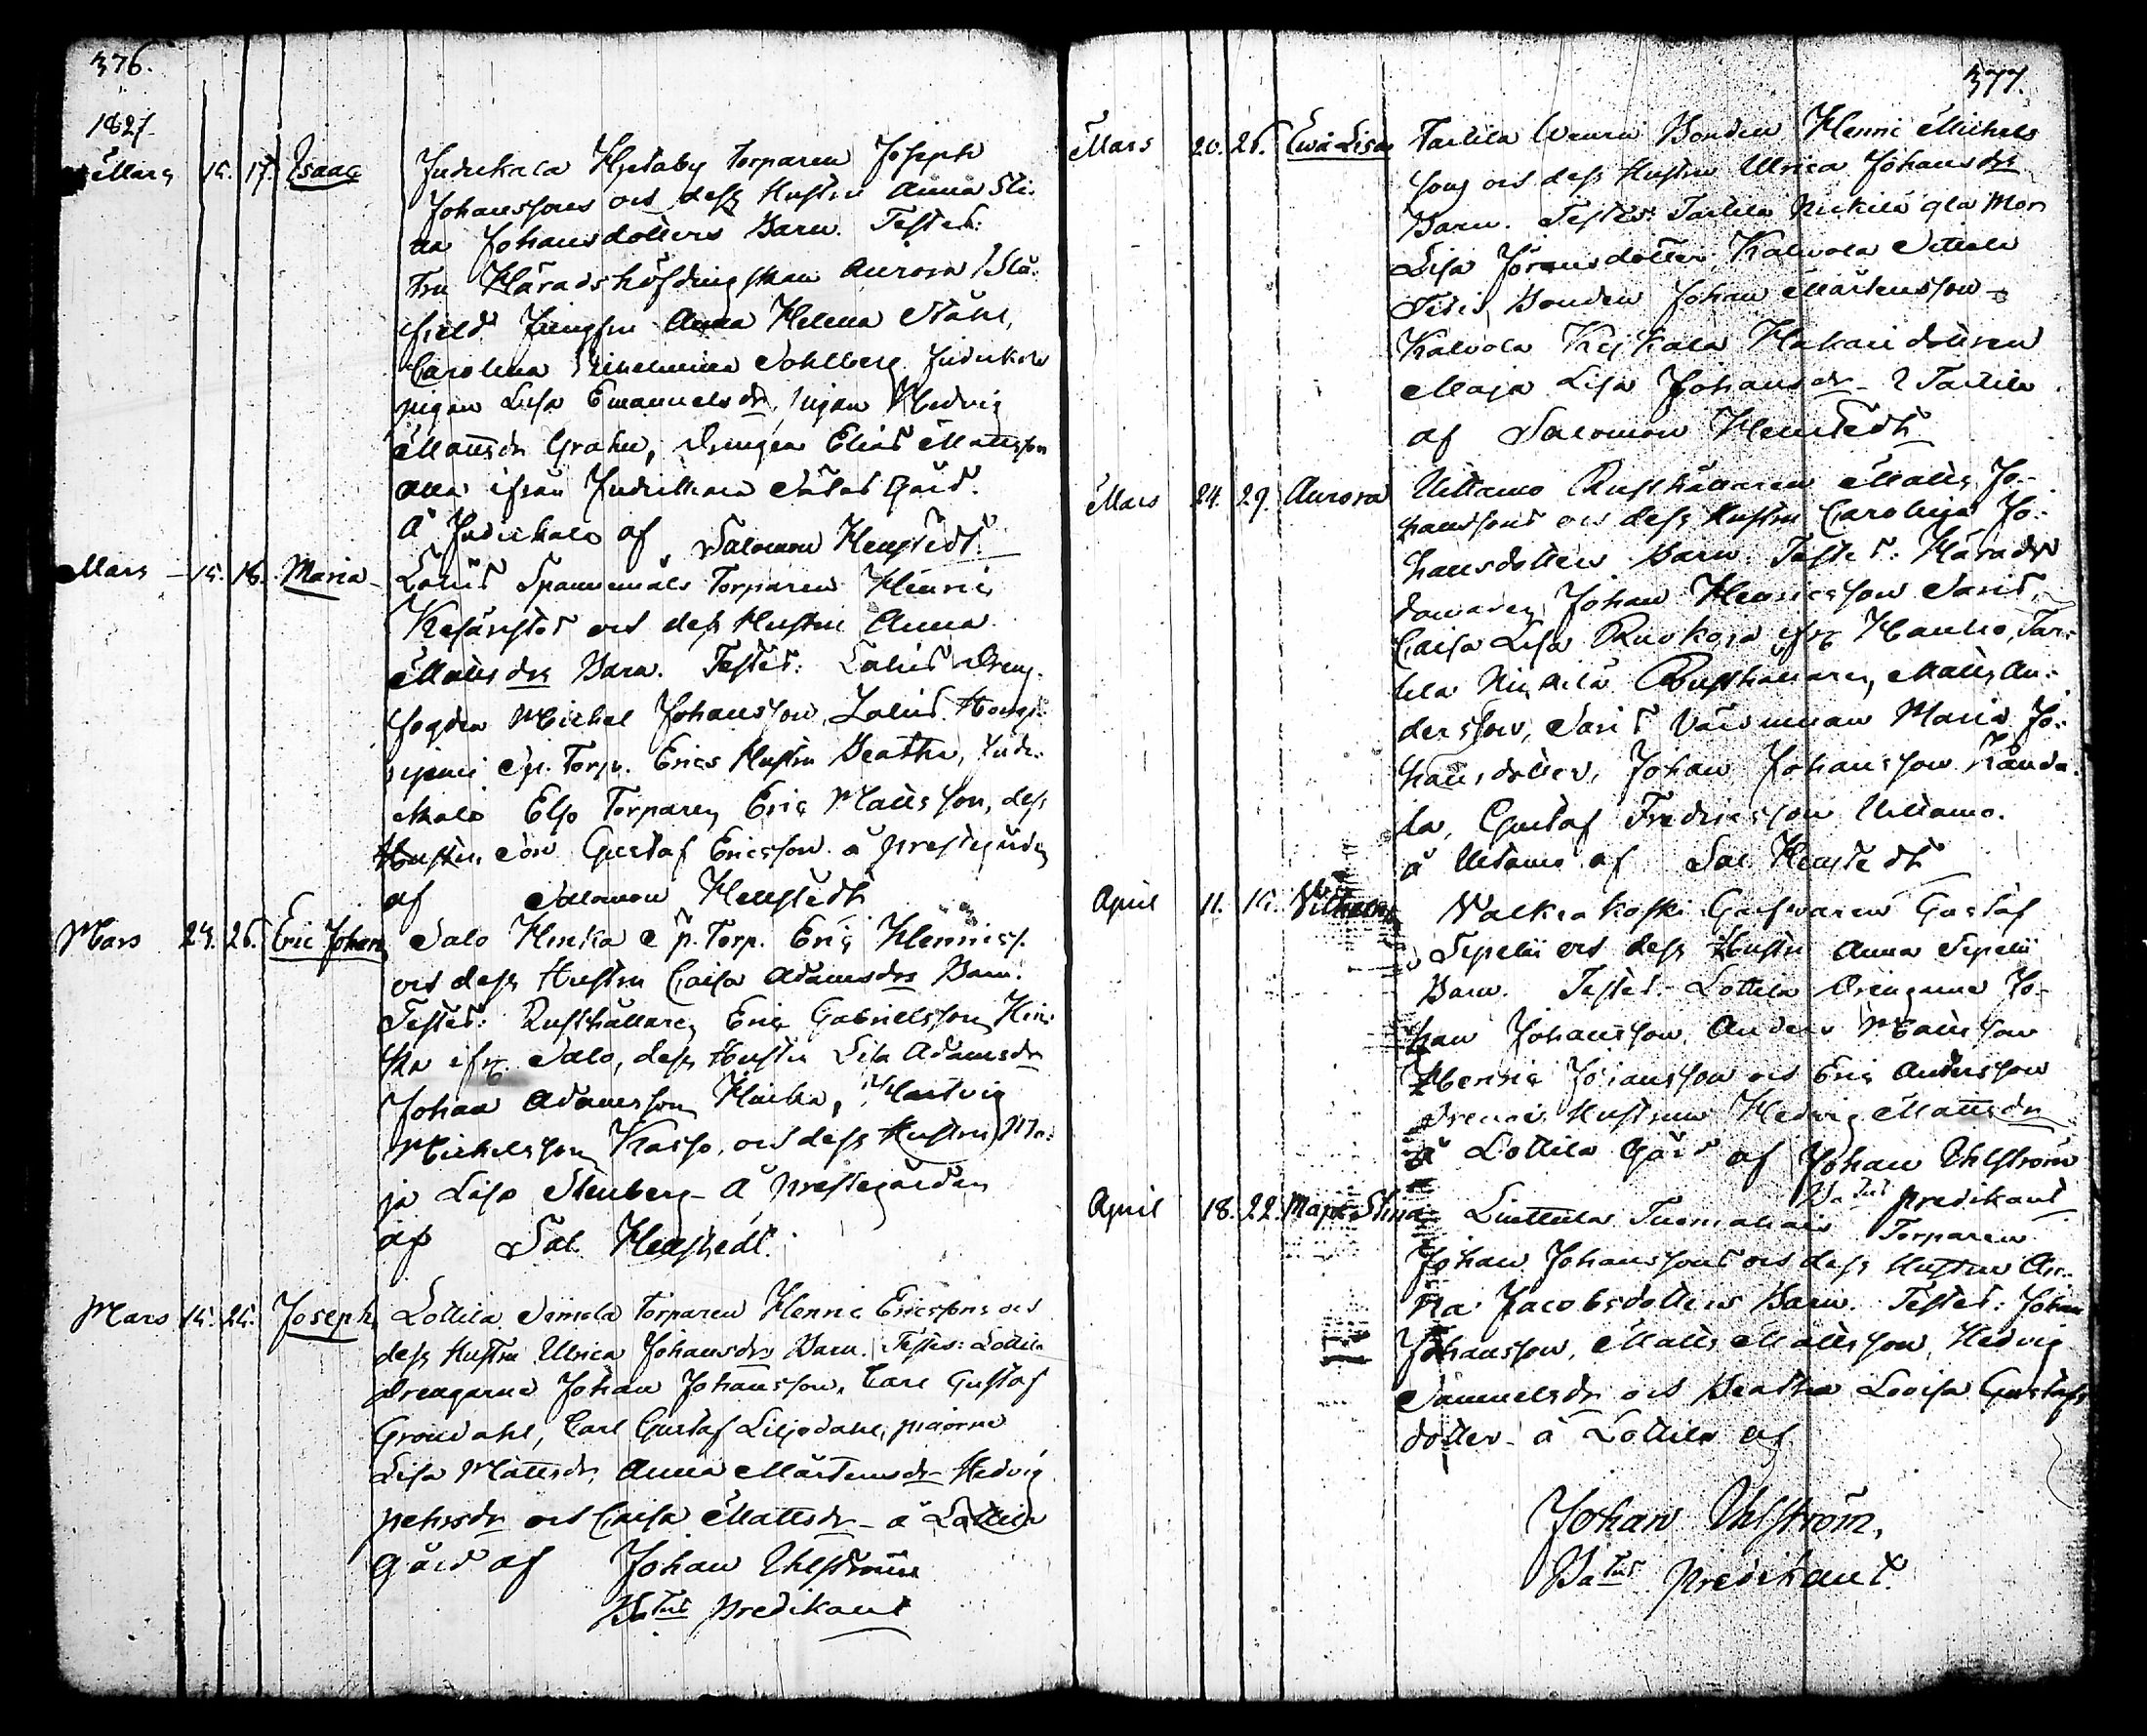 376.
1827
Mars 15. 17. Isaac Judickala Hetaby Torparen Joseph
Johanssons och dess Hustru Anna Sti-
na Johansdotters Barn. Testes:
Fru Häradshöfdingskan Aurora Blå-
field Jungfru Anna Helena Ståhl,
Carolina Wilhelmina Sohlberg Judickala
pigan Lisa Emanuelsdr, pigan Hedvig
Mattsdr Grahn, Drengen Elias Mattsson
alla ifrån Judickala Gård.
Å Judickala af Salomon Henstedt.
Mars 15. 18. Maria Torparen Henric
och dess Hustru Anna
Mattsdr Barn. Testes: Dreng-
fogden Michel Johansson,
Torp. Erics Hustru Beatha, Judi-
kala Torparen Eric Mattsson, dess
Hustru, Gustaf Ericsson å prestegården
af Salomon Henstedt
Mars 24. 26. Eric Johan Salo Hinka Torp. Eric Henrics.
och dess Hustru Caisa Adamsdrs Barn.
Testes: Rusthållaren Eric Gabrielsson Hin-
ka ifr. Salo, dess Hustru Adamsdr
Johan Adamsson Hinka, Hartvig
Michelsson, och dess Hustru Ma-
ja Lisa Stenberg - Å prestegården
af Sal. Henstedt.
Mars 15. 25. Joseph Lottila Simola Torparen Henric Ericssons och
dess Hustru Ulrica Johansdrs Barn. Testes: Lottila
Drengarne Johan Johansson, Carl Gustaf
Gröndahl, Carl Gustaf Liljedahl, pigorne
Lisa Mattsdr, Anna Mårtensdr - Hedvig
Pehrsdr och Caisa Mattsdr - å Lottila
Gård af Johan Uhlström
Batns Predikant
377.
Mars 20. 26. Ewa Lisa Tarttila Bonden Henric Michels
sons och dess Hustru Ulrica Johansdrs
Barn. Testes: Tarttila Nickilä gla Mor
Lisa Jöransdotter, Kalvola
Bonden Johan Mårtensson -
Kalvola Dottren
Maja Lisa Johansdr - Tarttila
af Salomon Henstedt
Mars 24. 29. Aurora Uittamo Rusthållaren Matts Jo-
hanssons och dess Hustru Carolina Jo-
hansdotters Barn. Testes: Härads
domaren Johan Henricsson
Caisa Lisa ifr. Tar-
tila Nickilä Rusthållaren Matts An-
dersson, Maria Jo-
hansdotter, Johan Johansson
la, Gustaf Fredricsson Uittamo.
å Uittamo af Sal. Henstedt
April 11. 15. Walkiakoski Gustaf
Sipelii och dess Hustru Anna Sipelii
Barn. Testes: Lottila Drengarne Jo-
han Johansson, Anders Mattsson
Henric Johansson och Eric Andersson
Hustrun Hedvig Mattsdr
å Lottila Gård af Johan Uhlström
Batns Predikant
April 18. 22. Maja Stina Torparen
Johan Johanssons och dess Hustru An-
na Jacobsdotters Barn. Testes: Johan
Johansson, Matts Mattsson, Hedvig
Samuelsdr och Beatha Lovisa Gustafs
dotter - å Lottila af
Johan Uhlström,
Batns Predikant.